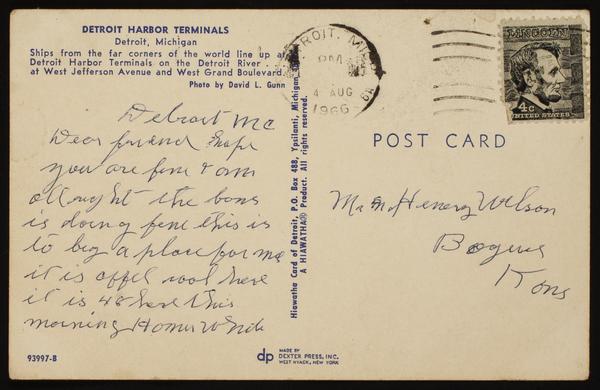 DETROIT HARBOR TERMINALS
Detroit, Michigan
Ships from the far corners of the world line up at
Detroit Harbor Terminals on the Detroit River
at West Jefferson Avenue and West Grand Boulevard.
Photo by David L. Gunn
Detroit Mc
Dear friend hope
you are fine & am
all right the boys
is doing fine this is
to big a place for me
it is offel cool here
it is 48 here this
morning Homer
93997-B
Hiawatha Card of Detroit, P.O. Box 488, Ypsilanti, Michigan
A HIAWATHA® Product. All rights reserved.
dp
MADE BY
DEXTER PRESS, INC.
WEST NYACK, NEW YORK
DETROIT, MICH
PM
4 AUG
1966
LINCOLN
4c
UNITED STATES
POST CARD
Henery Wilson
Kans